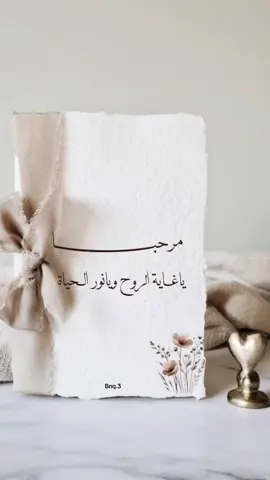 مرحبا
ياغاية الروح ويانور الحياة
Bnq.3